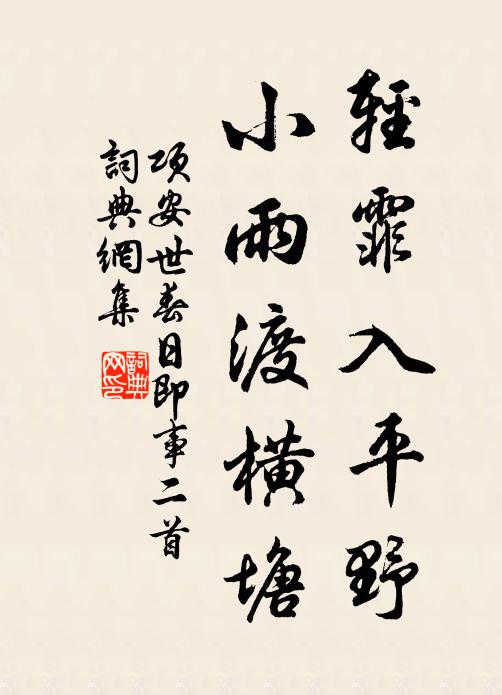 輕霏入平野
小雨渡橫塘
項安世春日即事二首
詞典網集
詞典
网印